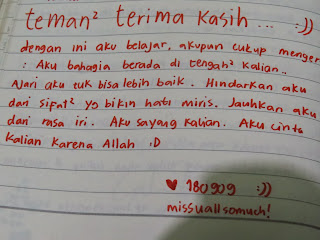 teman² terima kasih ... :))
dengan ini aku belajar, akupun cukup menger
: Aku bahagia berada di tengah² kalian..
Ajari aku tuk bisa lebih baik. Hindarkan aku
dari sifat² yg bikin hati miris. Jauhkan aku
dari rasa iri. Aku sayang kalian. Aku cinta
kalian karena Allah :D
♥ 180909 :))
missuallsomuch!